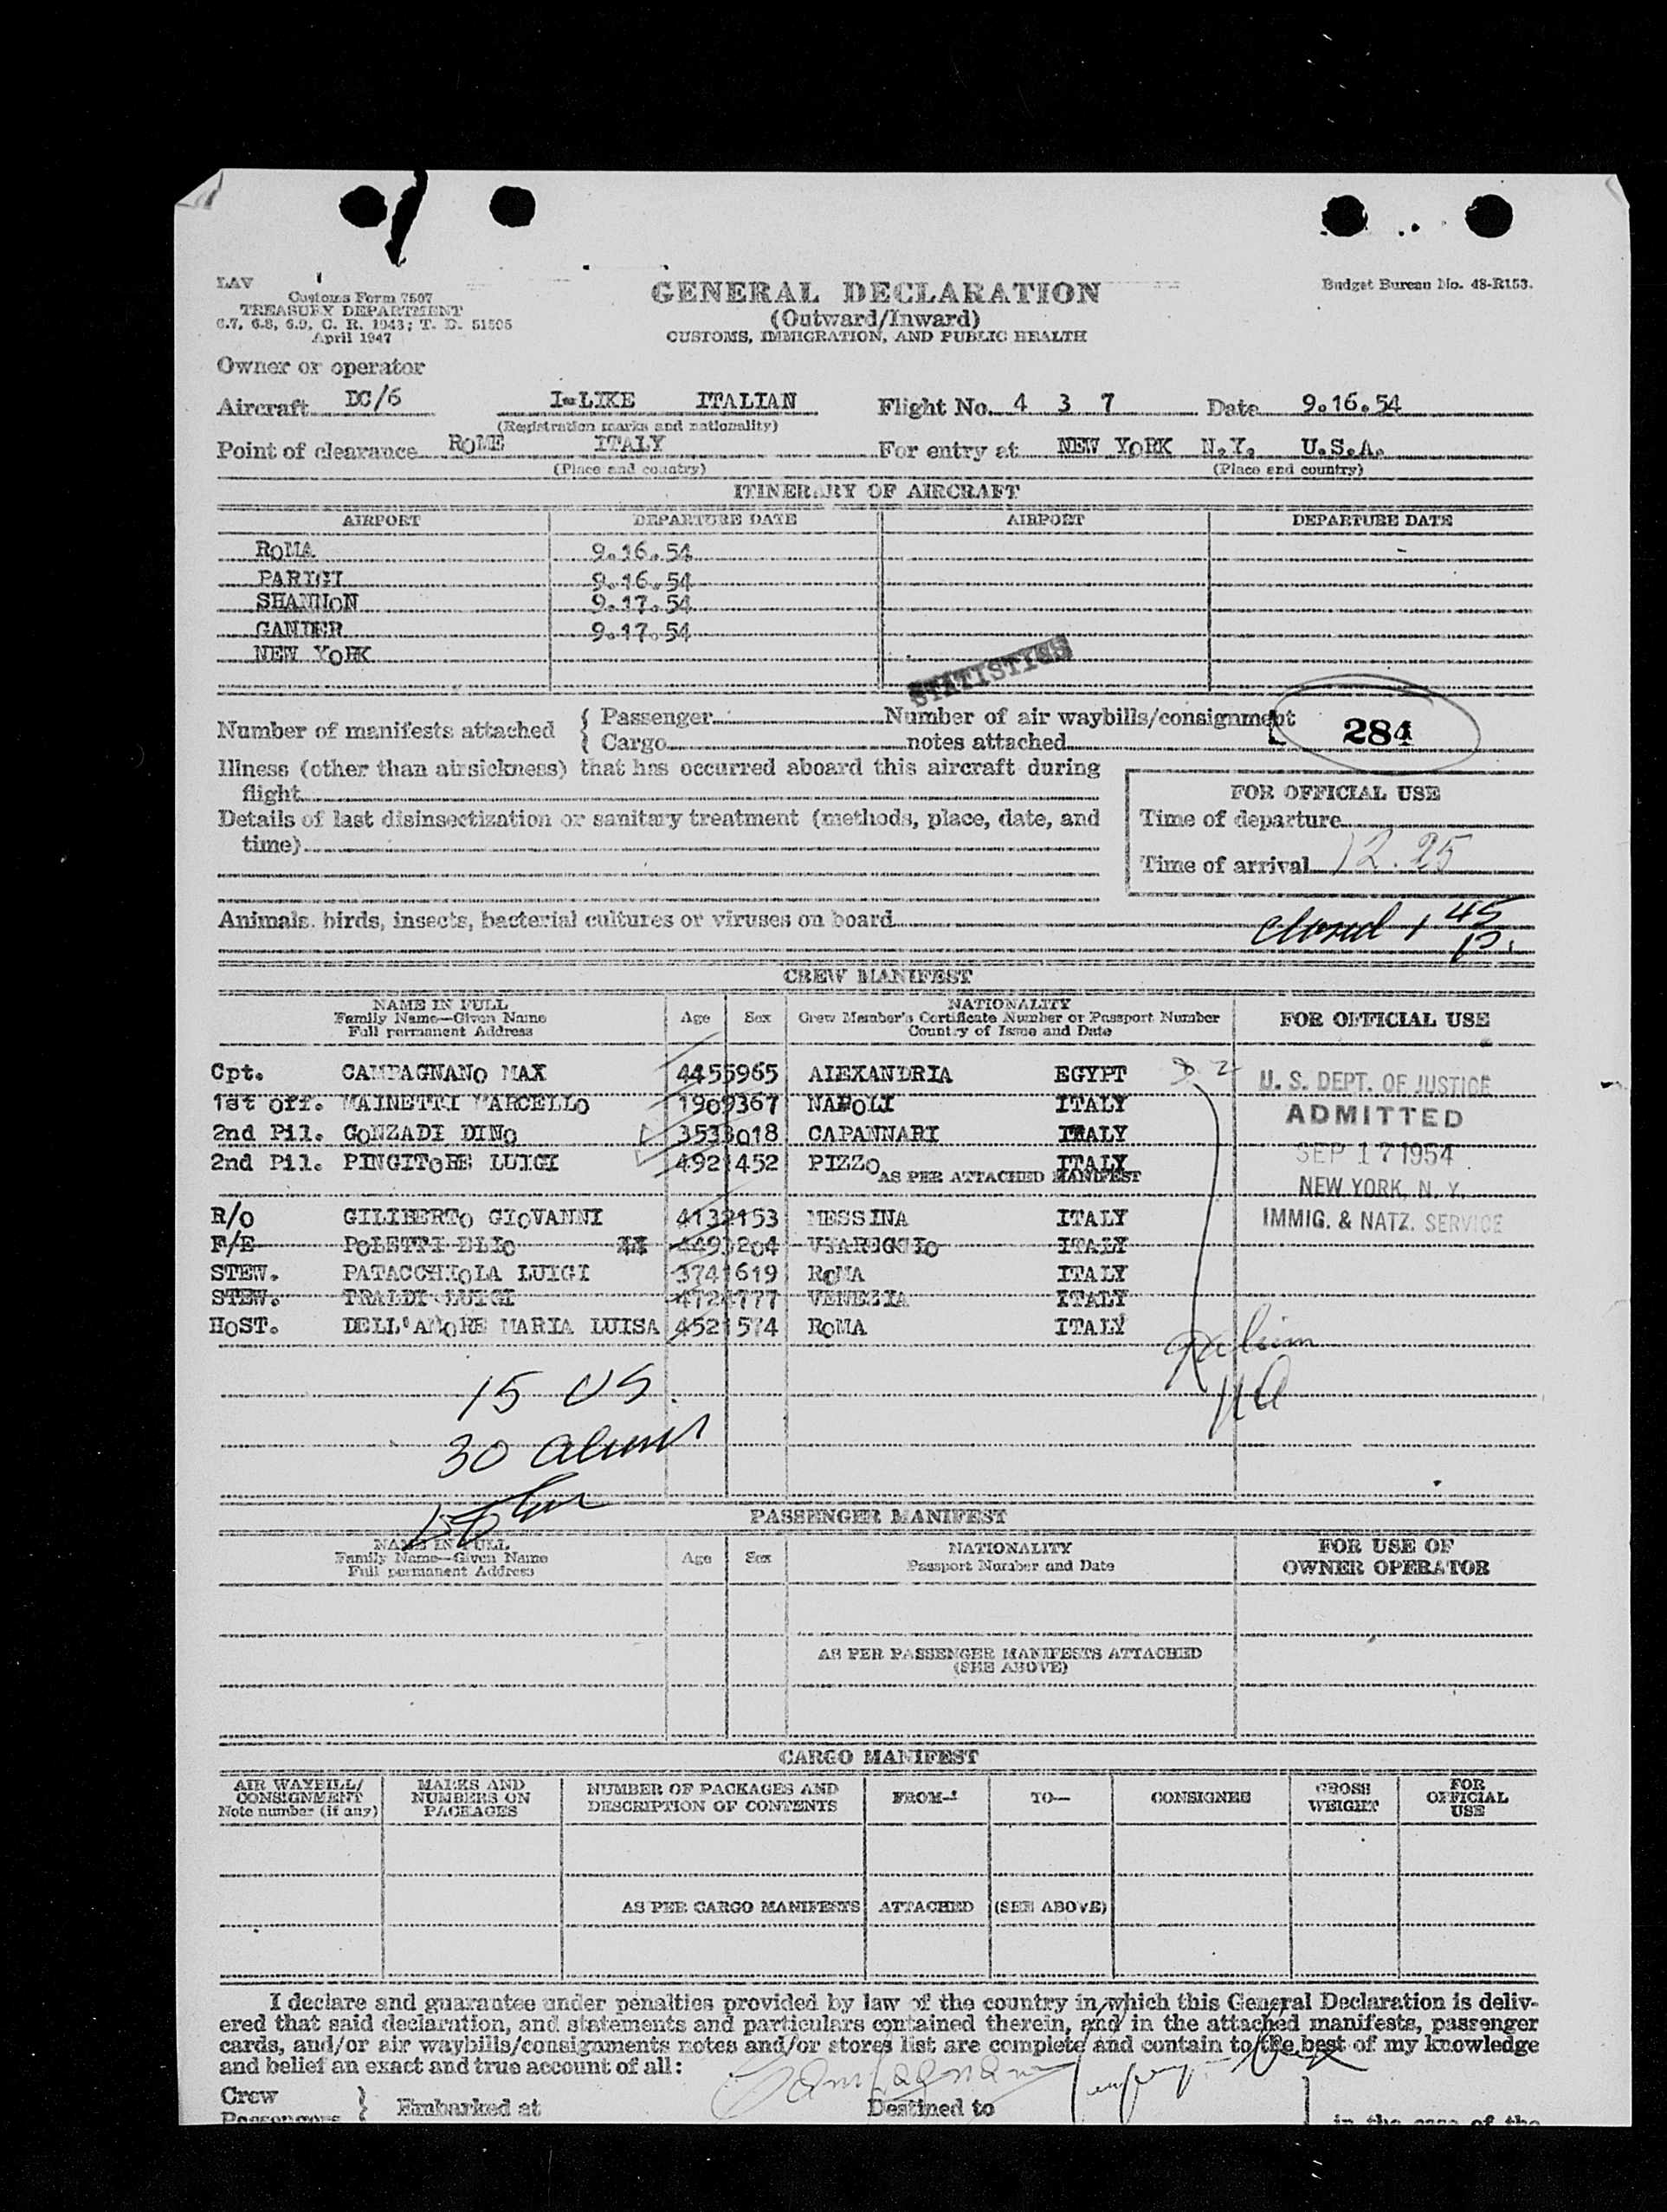 LAV
Customs Form 7507
TREASURY DEPARTMENT
6.7, 6.8, 6.9, C. R. 1943; T. D. 51505
April 1947
GENERAL DECLARATION
(Outward/Inward)
CUSTOMS, IMMIGRATION, AND PUBLIC HEALTH
Budget Bureau No. 48-R153.
Owner or operator
Aircraft DC/6 I-LIKE ITALIAN Flight No. 4 3 7 Date 9.16.54
(Registration marks and nationality)
Point of clearance ROME ITALY For entry at NEW YORK N.Y. U.S.A.
(Place and country) (Place and country)
ITINERARY OF AIRCRAFT
AIRPORT DEPARTURE DATE AIRPORT DEPARTURE DATE
ROMA 9.16.54
PARIGI 9.16.54
SHANNON 9.17.54
GANDER 9.17.54
NEW YORK
STATISTICS
Number of manifests attached { Passenger Number of air waybills/consignment
Cargo notes attached
284
Illness (other than airsickness) that has occurred aboard this aircraft during
flight
Details of last disinsectization or sanitary treatment (methods, place, date, and
time)
FOR OFFICIAL USE
Time of departure
Time of arrival 12.25
Animals, birds, insects, bacterial cultures or viruses on board
closed 1 45
CREW MANIFEST
NAME IN FULL
Family Name—Given Name
Full permanent Address
Age Sex
NATIONALITY
Crew Member's Certificate Number or Passport Number
Country of Issue and Date
FOR OFFICIAL USE
Cpt. CAMPAGNANO MAX 4455965 ALEXANDRIA EGYPT
1st Off. MAINETTI MARCELLO 1909367 NAPOLI ITALY
2nd Pil. GONZADI DINO 3533018 CAPANNARI ITALY
2nd Pil. PINGITORE LUIGI 4921452 PIZZO ITALY
AS PER ATTACHED MANIFEST
R/O GILIBERTO GIOVANNI 4132153 MESSINA ITALY
F/E POLETTI ELIO 4493204 VIAREGGIO ITALY
STEW. PATACCHIOLA LUIGI 3741619 ROMA ITALY
STEW. TRALDI LUIGI 4724777 VENEZIA ITALY
HOST. DELL'AMORE MARIA LUISA 4521574 ROMA ITALY
U. S. DEPT. OF JUSTICE
ADMITTED
SEP 17 1954
NEW YORK, N. Y.
IMMIG. & NATZ. SERVICE
15 US
30 aliens
PASSENGER MANIFEST
NAME IN FULL
Family Name—Given Name
Full permanent Address
Age Sex
NATIONALITY
Passport Number and Date
FOR USE OF
OWNER OPERATOR
AS PER PASSENGER MANIFESTS ATTACHED
(SEE ABOVE)
CARGO MANIFEST
AIR WAYBILL/
CONSIGNMENT
Note number (if any)
MARKS AND
NUMBERS ON
PACKAGES
NUMBER OF PACKAGES AND
DESCRIPTION OF CONTENTS
FROM—
TO—
CONSIGNEE
GROSS
WEIGHT
FOR
OFFICIAL
USE
AS PER CARGO MANIFESTS ATTACHED (SEE ABOVE)
I declare and guarantee under penalties provided by law of the country in which this General Declaration is deliv-
ered that said declaration, and statements and particulars contained therein, and in the attached manifests, passenger
cards, and/or air waybills/consignments notes and/or stores list are complete and contain to the best of my knowledge
and belief an exact and true account of all:
Crew
Passengers } Embarked at Destined to in the case of the